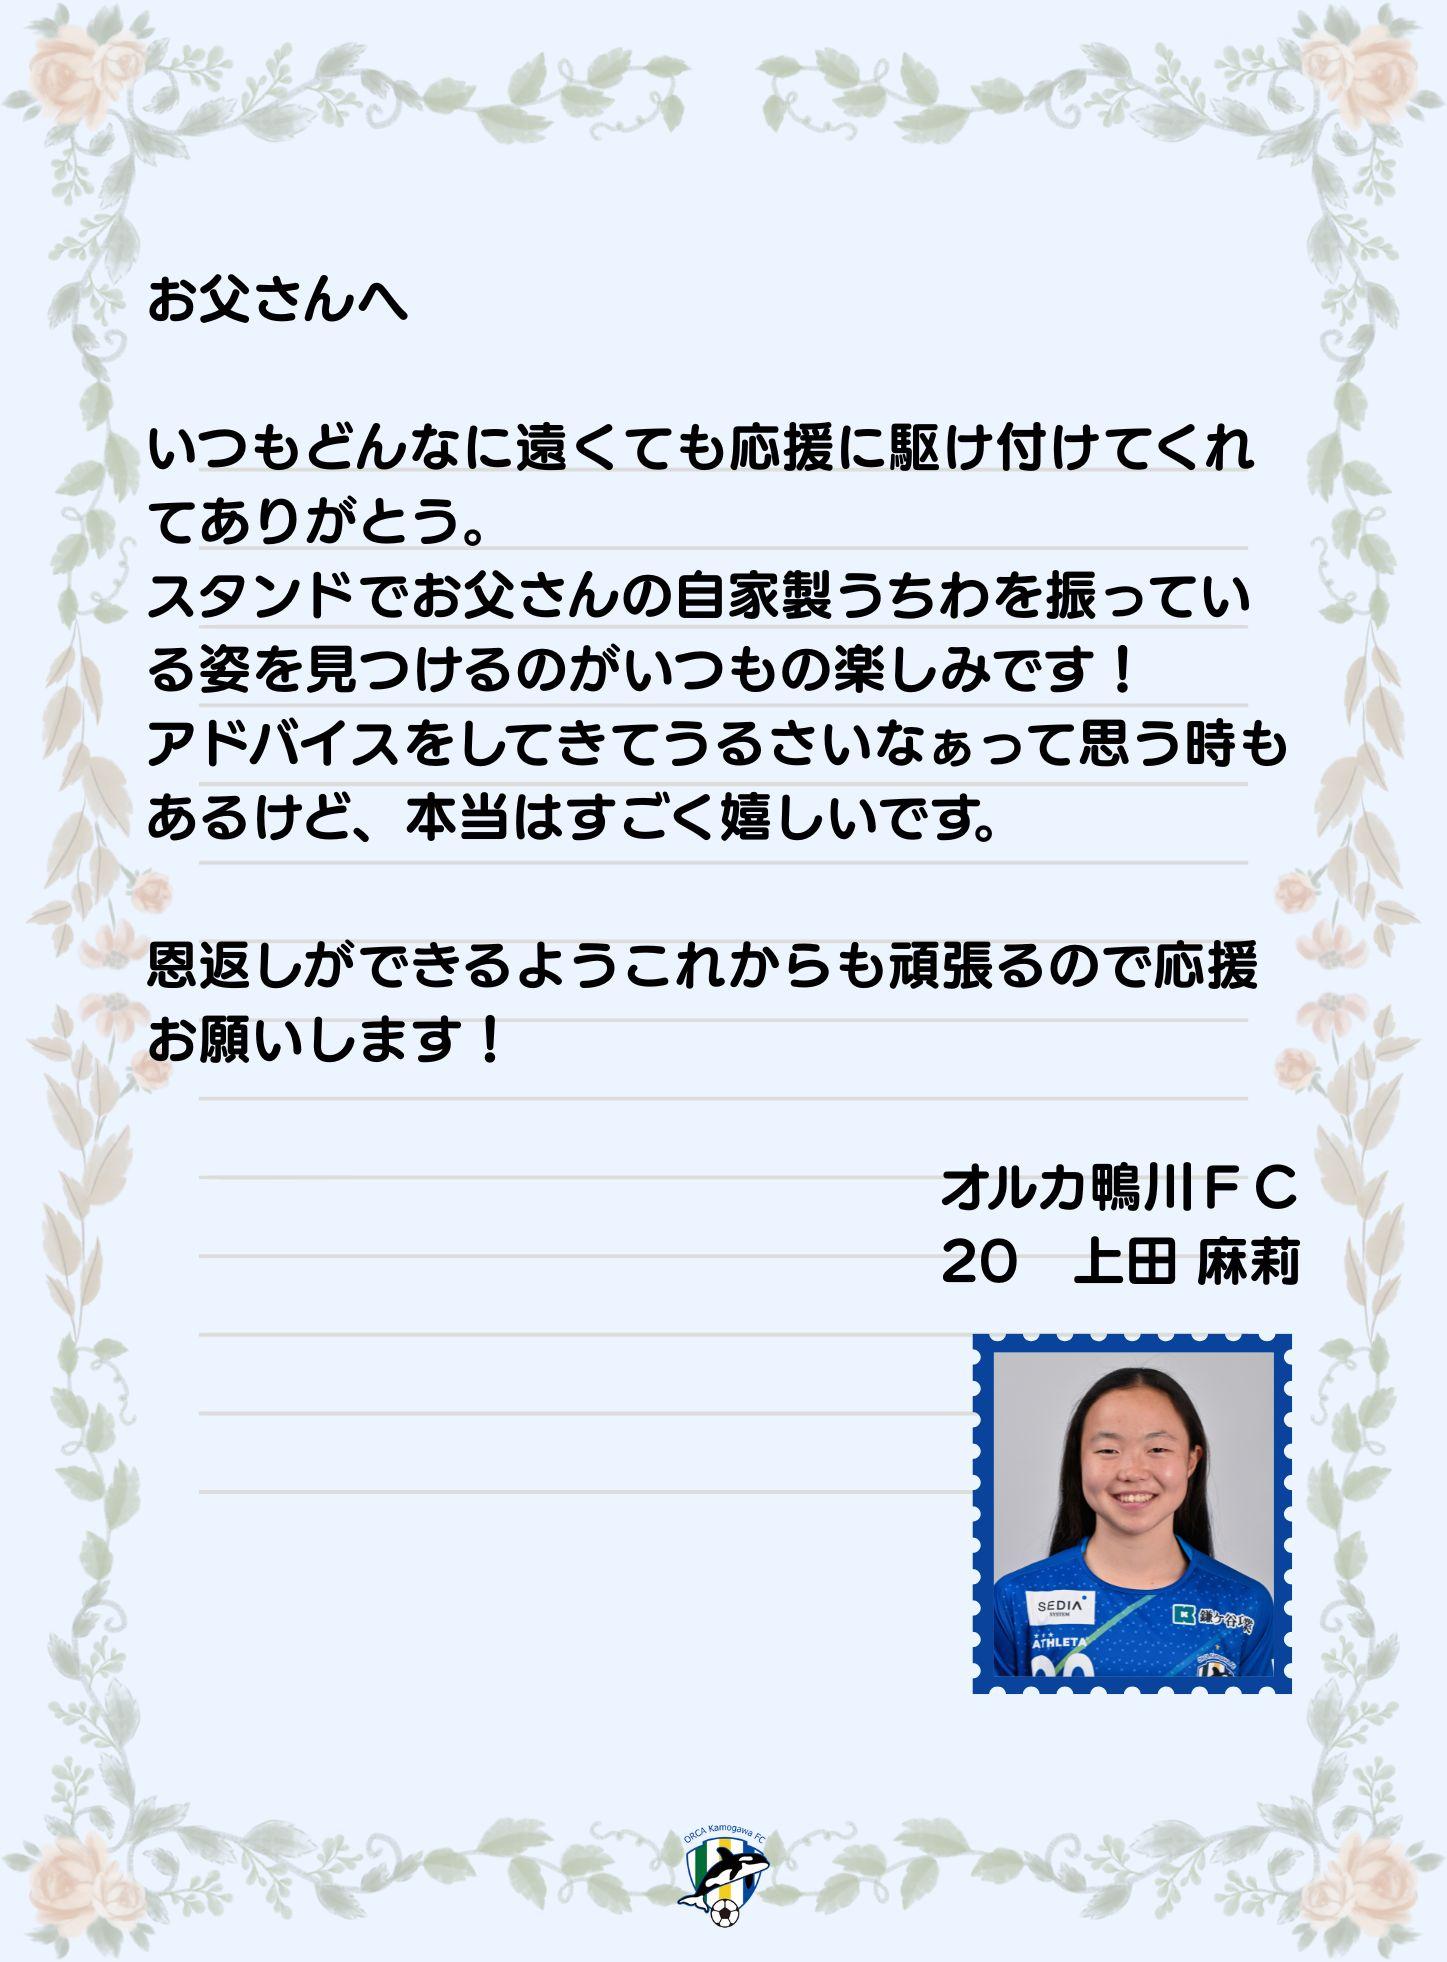 お父さんへ
いつもどんなに遠くても応援に駆け付けてくれ
てありがとう。
スタンドでお父さんの自家製うちわを振ってい
る姿を見つけるのがいつもの楽しみです！
アドバイスをしてきてうるさいなぁって思う時も
あるけど、本当はすごく嬉しいです。
恩返しができるようこれからも頑張るので応援
お願いします！
オルカ鴨川ＦＣ
20　上田 麻莉
SEDIA
SYSTEM
鎌ケ谷
ATHLETA
20
ORCA Kamogawa FC